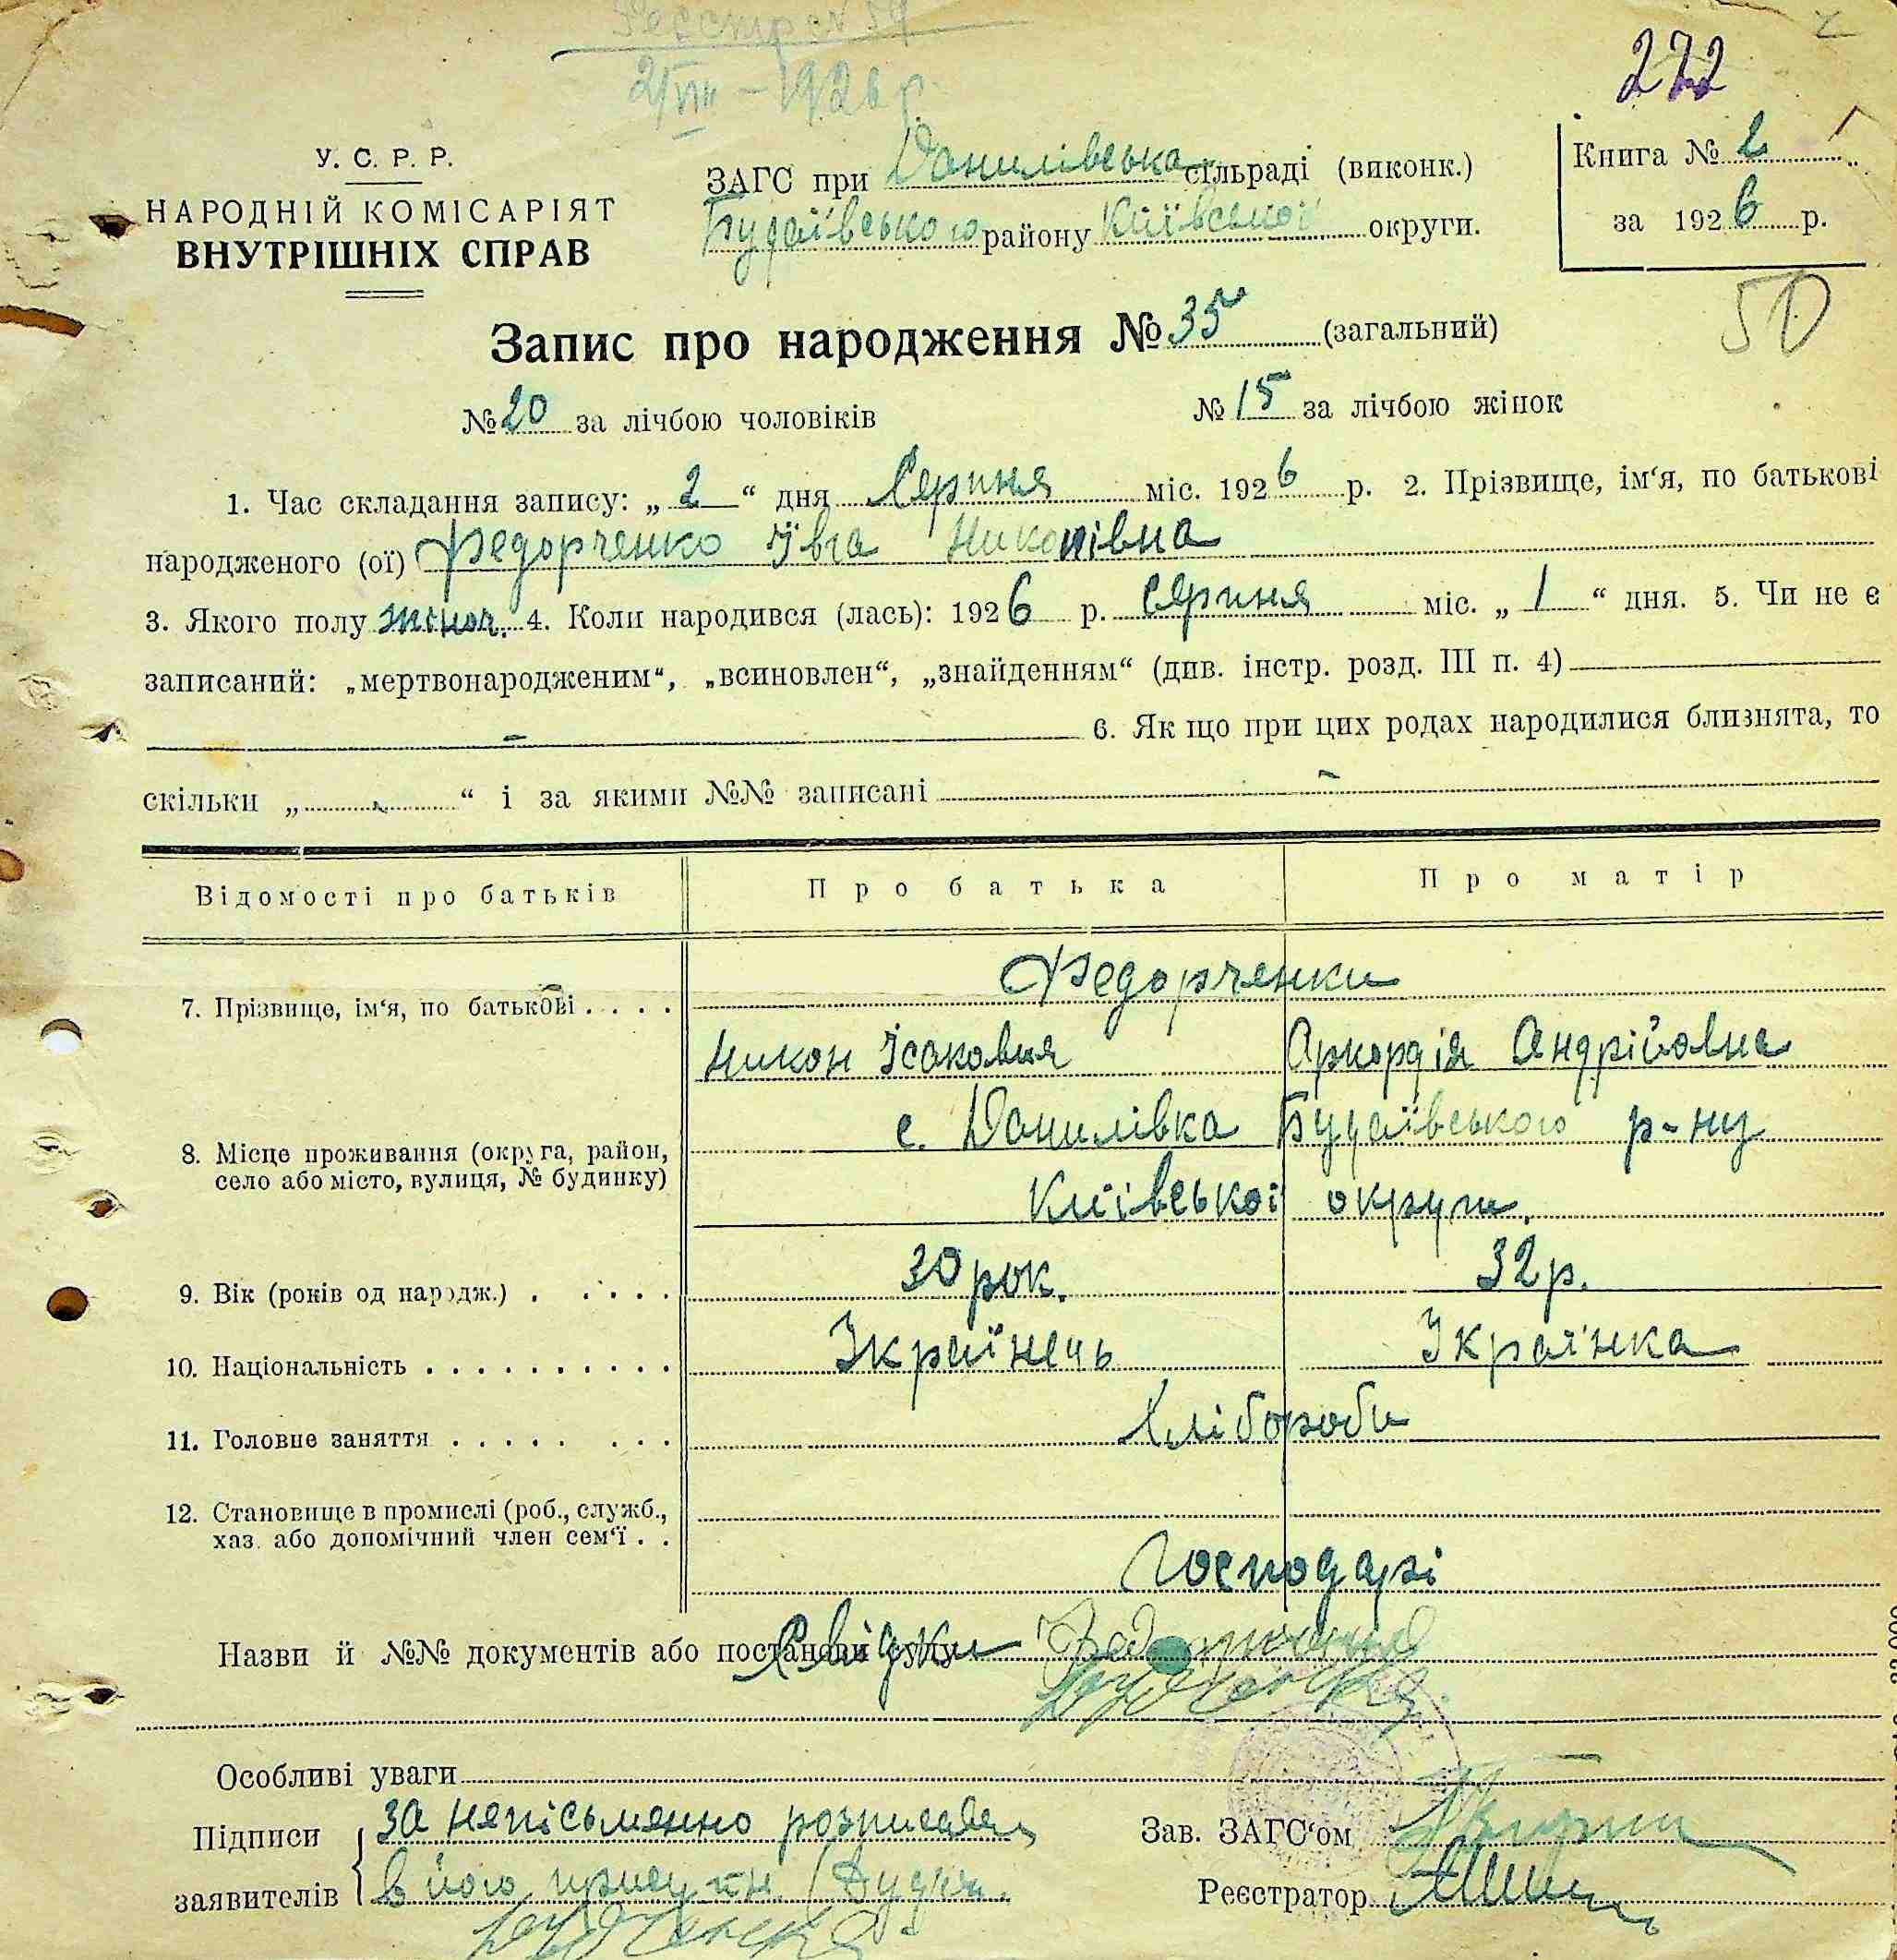 Реєстр № 59
2/VIII – 1926 р.
222
У. С. Р. Р.
НАРОДНІЙ КОМІСАРІЯТ
ВНУТРІШНІХ СПРАВ
ЗАГС при Данилівська сільраді (виконк.)
Будаївського району Київської округи.
Книга № 2
за 1926 р.
50
Запис про народження № 35 (загальний)
№ 20 за лічбою чоловіків № 15 за лічбою жінок
1. Час складання запису: „2“ дня Серпня міс. 1926 р. 2. Прізвище, ім‘я, по батькові
народженого (ої) Федорченко Ївга Никонівна
3. Якого полу жіноч. 4. Коли народився (лась): 1926 р. Серпня міс. „1“ дня. 5. Чи не є
записаний: „мертвонародженим“, „всиновлен“, „знайденням“ (див. інстр. розд. III п. 4)
– 6. Як що при цих родах народилися близнята, то
скільки „ “ і за якими №№ записані –
Відомості про батьків Про батька Про матір
Федорченки
7. Прізвище, ім‘я, по батькові . . . .
Никон Ісакович Аркордія Андрійовна
с. Данилівка Будаївського р-ну
8. Місце проживання (округа, район,
село або місто, вулиця, № будинку)
Київської округи.
9. Вік (років од народж.) . . . . . 30 рок. 32 р.
10. Національність . . . . . . . . . . Українець Українка
11. Головне заняття . . . . . . . . Хлібороби
12. Становище в промислі (роб., служб.,
хаз. або допомічний член сем‘ї . .
Господарі
Назви й №№ документів або постанови суду Свідки
Особливі уваги
Підписи за неписьменно розписався
заявителів в його присутн.
Зав. ЗАГС‘ом
Реєстратор